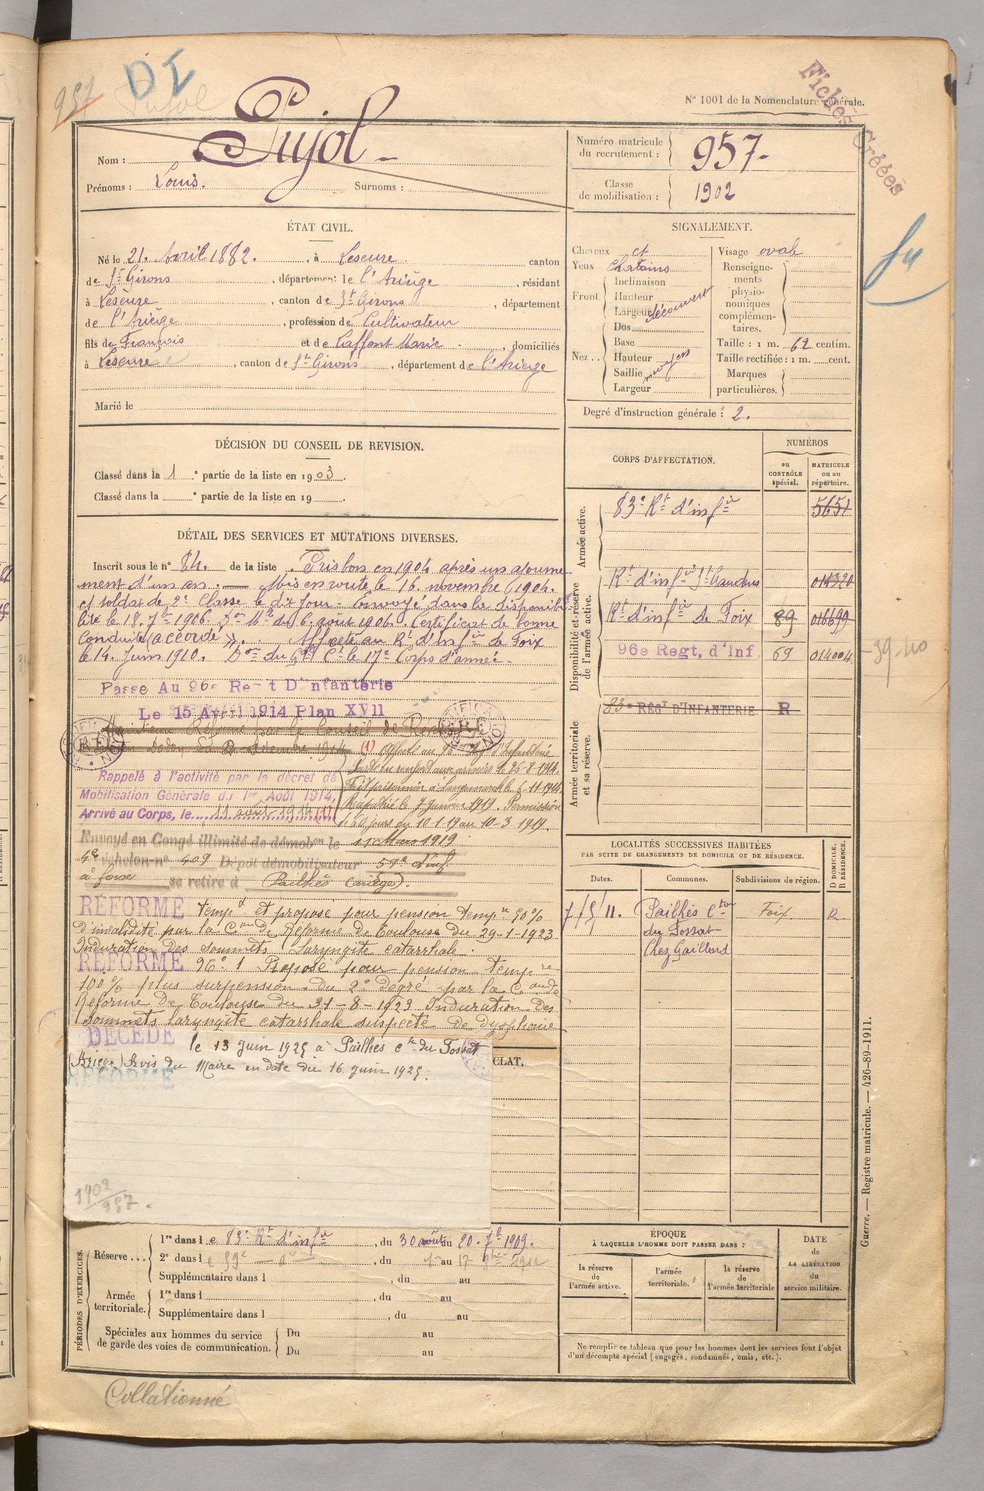 957
DI
Pujol
N° 1001 de la Nomenclature générale.
Fiches Créées
Nom : Pujol
Prénoms : Louis. Surnoms :
Numéro matricule du recrutement : 957
Classe de mobilisation : 1902
ÉTAT CIVIL.
Né le 21 Avril 1882. , à Lescure canton
de St Girons , département de l'Ariège , résidant
à Lescure , canton de St Girons , département
de l'Ariège , profession de Cultivateur
fils de François et de Laffont Marie , domiciliés
à Lescure , canton de St Girons , département de l'Ariège
Marié le
SIGNALEMENT.
Cheveux et
Yeux chatains
Front Inclinaison
Hauteur
Largeur découvert
Nez Dos
Base
Hauteur moyens
Saillie
Largeur
Visage ovale
Renseignements physionomiques complémentaires.
Taille : 1 m. 62 centim.
Taille rectifiée : 1 m. cent.
Marques particulières.
Degré d'instruction générale : 2.
DÉCISION DU CONSEIL DE REVISION.
Classé dans la 1e partie de la liste en 1903.
Classé dans la e partie de la liste en 19
DÉTAIL DES SERVICES ET MUTATIONS DIVERSES.
Inscrit sous le n° 84. de la liste Pris bon en 1904 après un ajourne-
ment d'un an. — Mis en route le 16 novembre 1904.
et soldat de 2e Classe le dix jour. Envoyé dans la disponibi-
lité le 18. 7re 1906. du 6 août 1906. Certificat de bonne
Conduite (accordé). Affecté au Rt d'Infie de Foix
le 14 Juin 1910. Don du Gal Ct le 17e Corps d'armée
Passé Au 96e Regt D'Infanterie
Le 15 Avril 1914 Plan XVII
Rappelé à l'activité par le décret de
Mobilisation Générale du 1er Août 1914,
Arrivé au Corps, le 11 août 1914 (1)
(1) Affecté au 96e Regt d'Infanterie
Parti en renfort aux armées le 26-8-1914.
Fait prisonnier à Langemark le 6-11-1914
Rapatrié le 7 janvier 1919. Permission
de 60 jours du 10-1-19 au 10-3 1919.
Envoyé en Congé illimité de démobon le 11 Mars 1919
4e échelon n° 409 Dépôt démobilisateur 59e d'Inf
à foix se retire à Pailhès (ariège).
RÉFORMÉ tempre et proposé pour pension tempre 50%
d'invalidité par la Con de Réforme de Toulouse du 29-1-1923
Induration des sommets laryngite catarrhale
RÉFORMÉ N° 1 Proposé pour pension tempre
100% plus surpension du 2e degré par la Con de
Réforme de Toulouse du 31-8-1923 Induration des
sommets laryngite catarrhale suspecte de dysphonie
DÉCÉDÉ le 13 Juin 1925 à Pailhès cton du Fossat
(Ariège) Avis du Maire en date du 16 Juin 1925.
RÉFORMÉ
CLAT.
1902
957
CORPS D'AFFECTATION.
NUMÉROS
au CONTRÔLE spécial.
MATRICULE ou au répertoire.
Armée active.
83e Rt d'infie 5651
Disponibilité et réserve de l'armée active.
Rt d'infie St Gaudens
Rt d'infie de Foix 89
96e Regt. d'Inf 69 014004
39.40
Armée territoriale et sa réserve.
83e RÉGT D'INFANTERIE R
LOCALITÉS SUCCESSIVES HABITÉES
PAR SUITE DE CHANGEMENTS DE DOMICILE OU DE RÉSIDENCE.
Dates. Communes. Subdivisions de région. D DOMICILE. R RÉSIDENCE.
7/5/11. Pailhès cton Foix R
du Fossat
Chez Gaillard
PÉRIODES D'EXERCICES.
Réserve 1re dans le 83e Rt d'infie , du 30 août au 20 7re 1909.
2e dans le 59e , du 1er au 17 9bre 1911
Supplémentaire dans l , du au
Armée territoriale. 1re dans l , du au
Supplémentaire dans l , du au
Spéciales aux hommes du service de garde des voies de communication. Du au
Du au
ÉPOQUE
À LAQUELLE L'HOMME DOIT PASSER DANS :
la réserve de l'armée active. l'armée territoriale. la réserve de l'armée territoriale
DATE de LA LIBÉRATION du service militaire.
Ne remplir ce tableau que pour les hommes dont les services font l'objet
d'un décompte spécial (engagés, condamnés, omis, etc.).
Guerre. — Registre matricule. — 426-89-1911.
Collationné